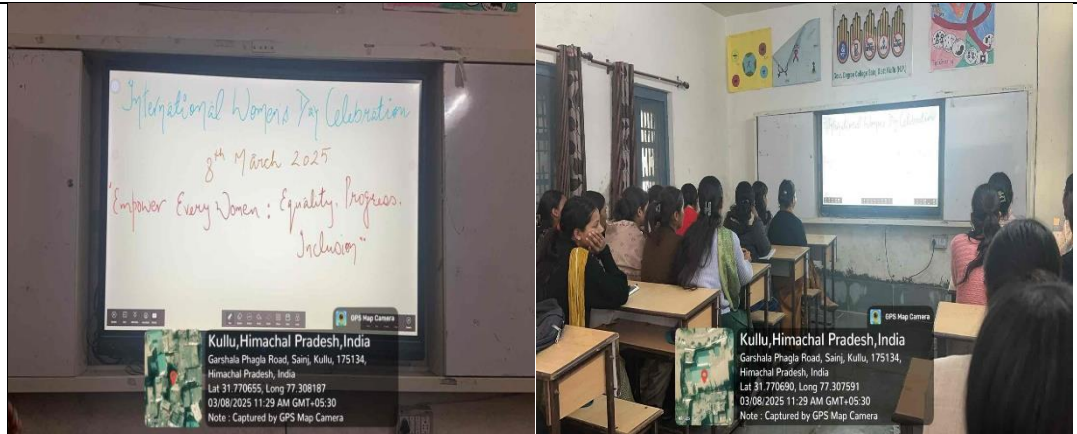 International Womens Day Celebration
8th March 2025
"Empower Every Women : Equality, Progress,
Inclusion"
GPS Map Camera
Kullu,Himachal Pradesh,India
Garshala Phagla Road, Sainj, Kullu, 175134,
Himachal Pradesh, India
Lat 31.770655, Long 77.308187
03/08/2025 11:29 AM GMT+05:30
Note : Captured by GPS Map Camera
Govt. Degree College Sainj, Distt Kullu (H.P.)
International Womens Day Celebration
GPS Map Camera
Kullu,Himachal Pradesh,India
Garshala Phagla Road, Sainj, Kullu, 175134,
Himachal Pradesh, India
Lat 31.770690, Long 77.307591
03/08/2025 11:29 AM GMT+05:30
Note : Captured by GPS Map Camera